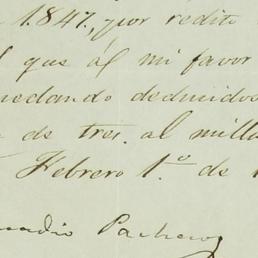 1.847,, por redito
que ál mi favor
quedando deducidos
de tres. al milla
Febrero 1.º de 1
Pacheco